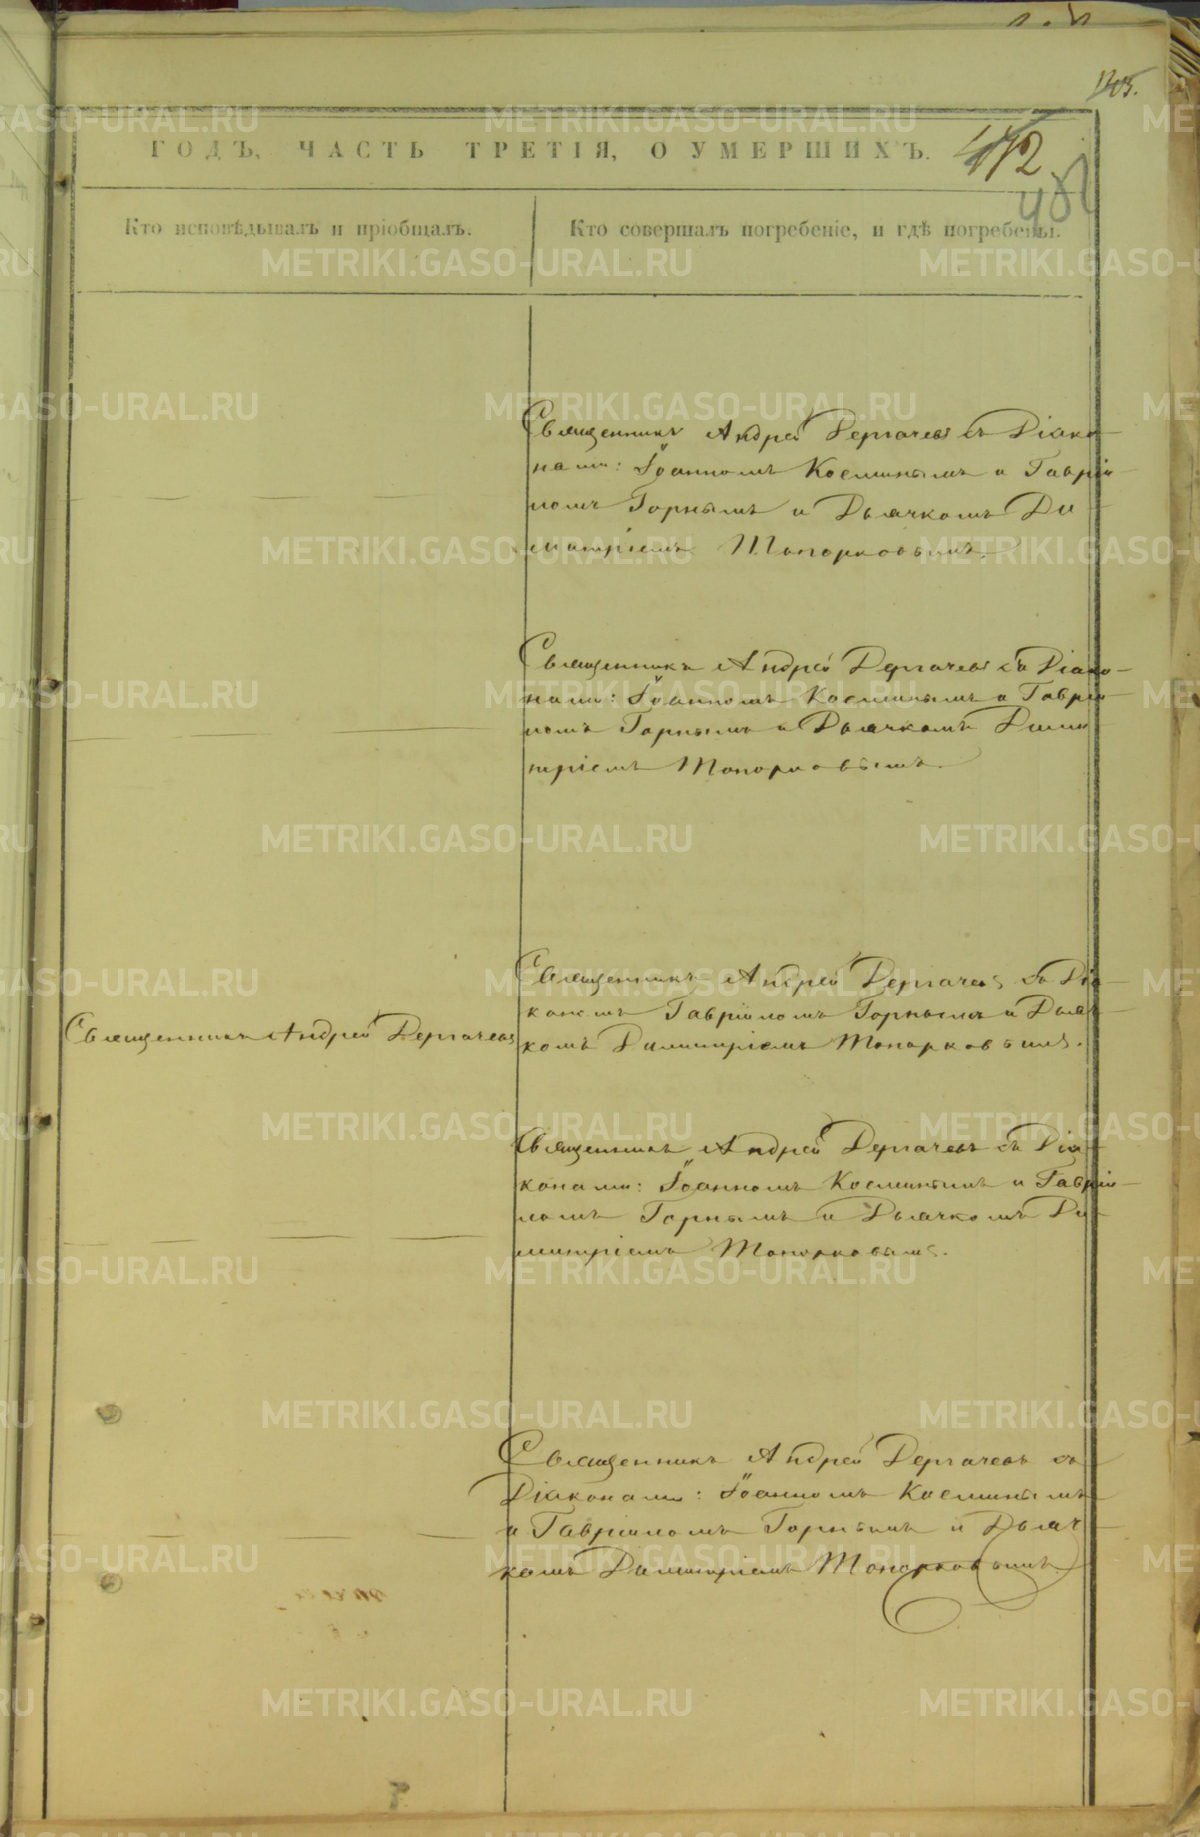 ГОДЪ, ЧАСТЬ ТРЕТІЯ, О УМЕРШИХЪ.
472
Кто исповѣдывалъ и пріобщалъ.
Кто совершалъ погребеніе, и гдѣ погребены.
Священникъ Андрей Дергачевъ съ Діако-
нами: Іоанномъ Косминымъ и Гавріи-
ломъ Горнымъ и Дьячкомъ Ди-
митріемъ Топорковымъ.
Священникъ Андрей Дергачевъ съ Діако-
нами: Іоанномъ Косминымъ и Гавріи-
ломъ Горнымъ и Дьячкомъ Дими
тріемъ Топорковымъ.
Священникъ Андрей Дергачевъ
Священникъ Андрей Дергачевъ съ Діа-
кономъ Гавріиломъ Горнымъ и Дьяч-
комъ Димитріемъ Топорковымъ.
Священникъ Андрей Дергачевъ съ Діа-
конами: Іоанномъ Косминымъ и Гавріи-
ломъ Горнымъ и Дьячкомъ Ди-
митріемъ Топорковымъ.
Священникъ Андрей Дергачевъ съ
Діаконами: Іоанномъ Косминымъ
и Гавріиломъ Горнымъ и Дьяч-
комъ Димитріемъ Топорковымъ.
METRIKI.GASO-URAL.RU